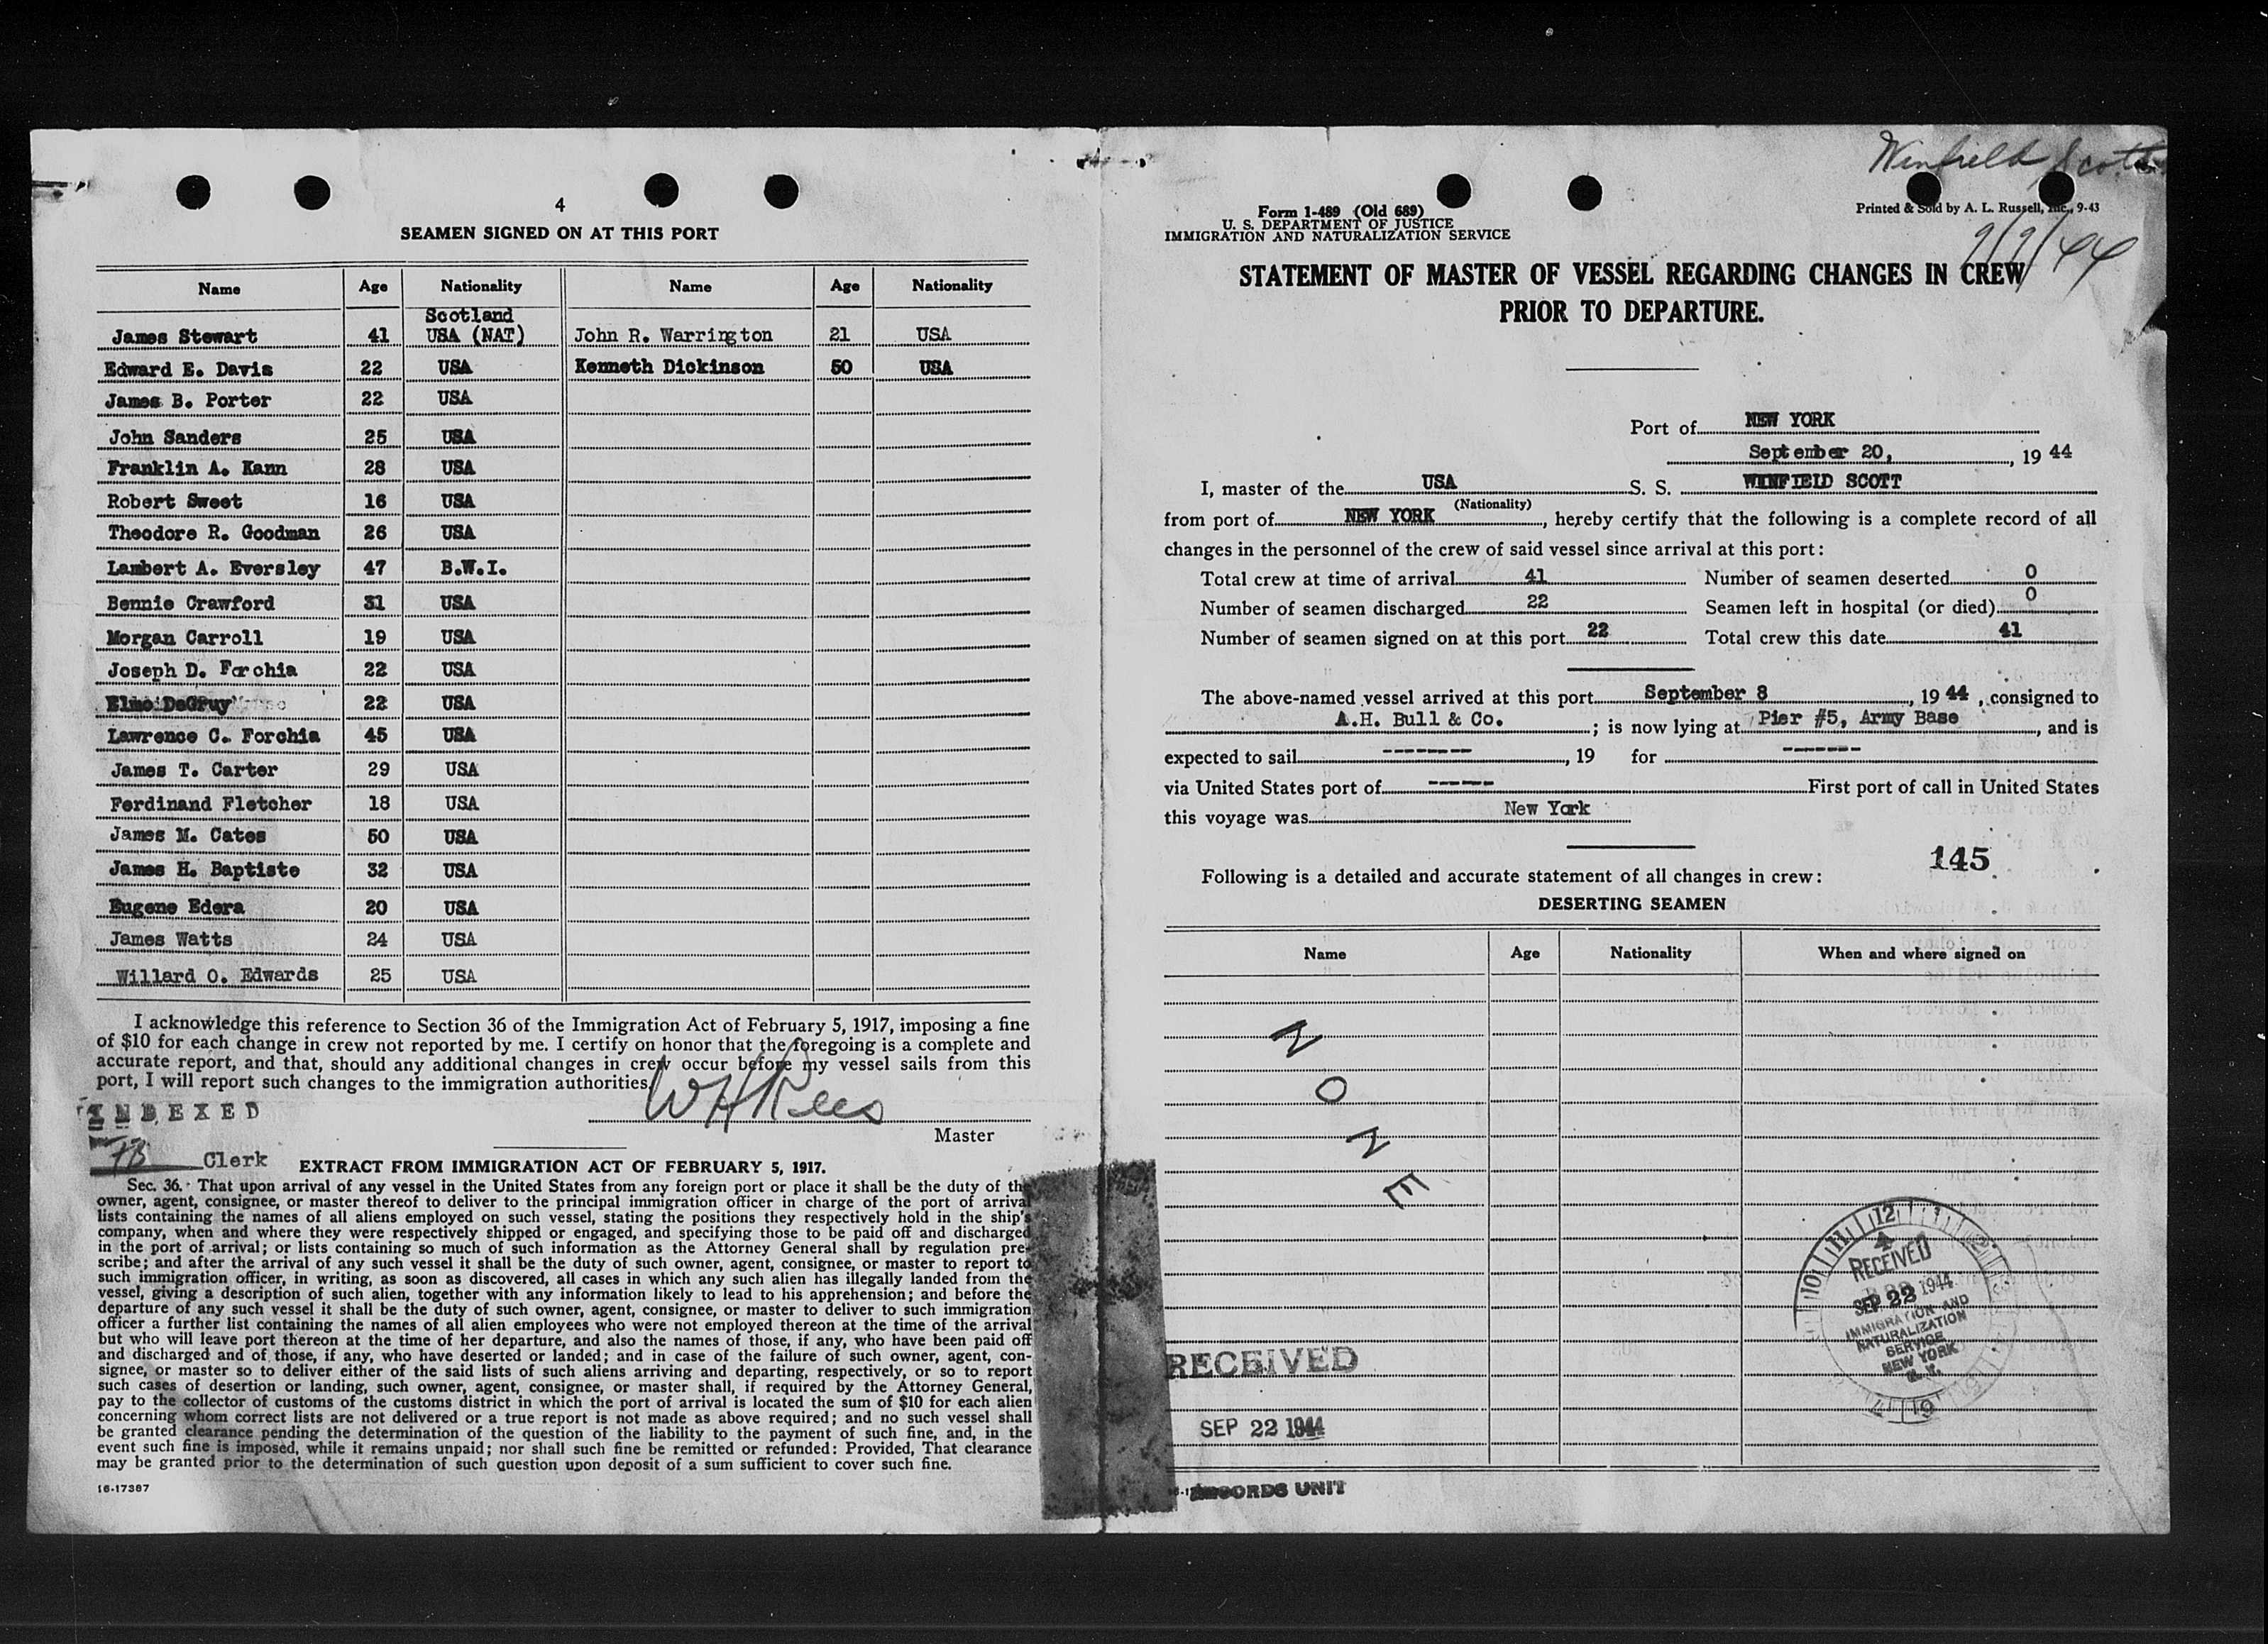 4
SEAMEN SIGNED ON AT THIS PORT
Name Age Nationality Name Age Nationality
James Stewart 41 Scotland USA (NAT) John R. Warrington 21 USA
Edward E. Davis 22 USA Kenneth Dickinson 50 USA
James B. Porter 22 USA
John Sanders 25 USA
Franklin A. Kann 28 USA
Robert Sweet 16 USA
Theodore R. Goodman 26 USA
Lambert A. Eversley 47 B.W.I.
Bennie Crawford 31 USA
Morgan Carroll 19 USA
Joseph D. Forchia 22 USA
Elmo DeGruy 22 USA
Lawrence C. Forchia 45 USA
James T. Carter 29 USA
Ferdinand Fletcher 18 USA
James M. Cates 50 USA
James H. Baptiste 32 USA
Eugene Edera 20 USA
James Watts 24 USA
Willard O. Edwards 25 USA
I acknowledge this reference to Section 36 of the Immigration Act of February 5, 1917, imposing a fine
of $10 for each change in crew not reported by me. I certify on honor that the foregoing is a complete and
accurate report, and that, should any additional changes in crew occur before my vessel sails from this
port, I will report such changes to the immigration authorities.
WHRees
Master
INDEXED
FB Clerk
EXTRACT FROM IMMIGRATION ACT OF FEBRUARY 5, 1917.
Sec. 36. That upon arrival of any vessel in the United States from any foreign port or place it shall be the duty of the
owner, agent, consignee, or master thereof to deliver to the principal immigration officer in charge of the port of arrival
lists containing the names of all aliens employed on such vessel, stating the positions they respectively hold in the ship's
company, when and where they were respectively shipped or engaged, and specifying those to be paid off and discharged
in the port of arrival; or lists containing so much of such information as the Attorney General shall by regulation pre-
scribe; and after the arrival of any such vessel it shall be the duty of such owner, agent, consignee, or master to report to
such immigration officer, in writing, as soon as discovered, all cases in which any such alien has illegally landed from the
vessel, giving a description of such alien, together with any information likely to lead to his apprehension; and before the
departure of any such vessel it shall be the duty of such owner, agent, consignee, or master to deliver to such immigration
officer a further list containing the names of all alien employees who were not employed thereon at the time of the arrival
but who will leave port thereon at the time of her departure, and also the names of those, if any, who have been paid off
and discharged and of those, if any, who have deserted or landed; and in case of the failure of such owner, agent, con-
signee, or master so to deliver either of the said lists of such aliens arriving and departing, respectively, or so to report
such cases of desertion or landing, such owner, agent, consignee, or master shall, if required by the Attorney General,
pay to the collector of customs of the customs district in which the port of arrival is located the sum of $10 for each alien
concerning whom correct lists are not delivered or a true report is not made as above required; and no such vessel shall
be granted clearance pending the determination of the question of the liability to the payment of such fine, and, in the
event such fine is imposed, while it remains unpaid; nor shall such fine be remitted or refunded: Provided, That clearance
may be granted prior to the determination of such question upon deposit of a sum sufficient to cover such fine.
16-17387
Winfield Scott
9/9/44
Form 1-489 (Old 689)
U. S. DEPARTMENT OF JUSTICE
IMMIGRATION AND NATURALIZATION SERVICE
Printed & Sold by A. L. Russell, Inc., 9-43
STATEMENT OF MASTER OF VESSEL REGARDING CHANGES IN CREW
PRIOR TO DEPARTURE.
Port of NEW YORK
September 20, , 19 44
I, master of the USA S. S. WINFIELD SCOTT
(Nationality)
from port of NEW YORK, hereby certify that the following is a complete record of all
changes in the personnel of the crew of said vessel since arrival at this port:
Total crew at time of arrival 41 Number of seamen deserted 0
Number of seamen discharged 22 Seamen left in hospital (or died) 0
Number of seamen signed on at this port 22 Total crew this date 41
The above-named vessel arrived at this port September 8, 19 44, consigned to
A.H. Bull & Co. ; is now lying at Pier #5, Army Base, and is
expected to sail -------, 19 for -------
via United States port of ----- First port of call in United States
this voyage was New York
145
Following is a detailed and accurate statement of all changes in crew:
DESERTING SEAMEN
Name Age Nationality When and where signed on
NONE
RECEIVED
SEP 22 1944
RECORDS UNIT
10 11 12 1 2
RECEIVED
SEP 22 1944
IMMIGRATION AND
NATURALIZATION
SERVICE
NEW YORK
N.Y.
7 6